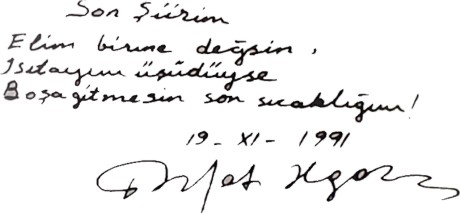 Son Şiirim
Elim birine değsin,
Isıtayım üşüdüyse
Boşa gitmesin son sıcaklığım!
19-XI-1991
Rıfat Ilgaz